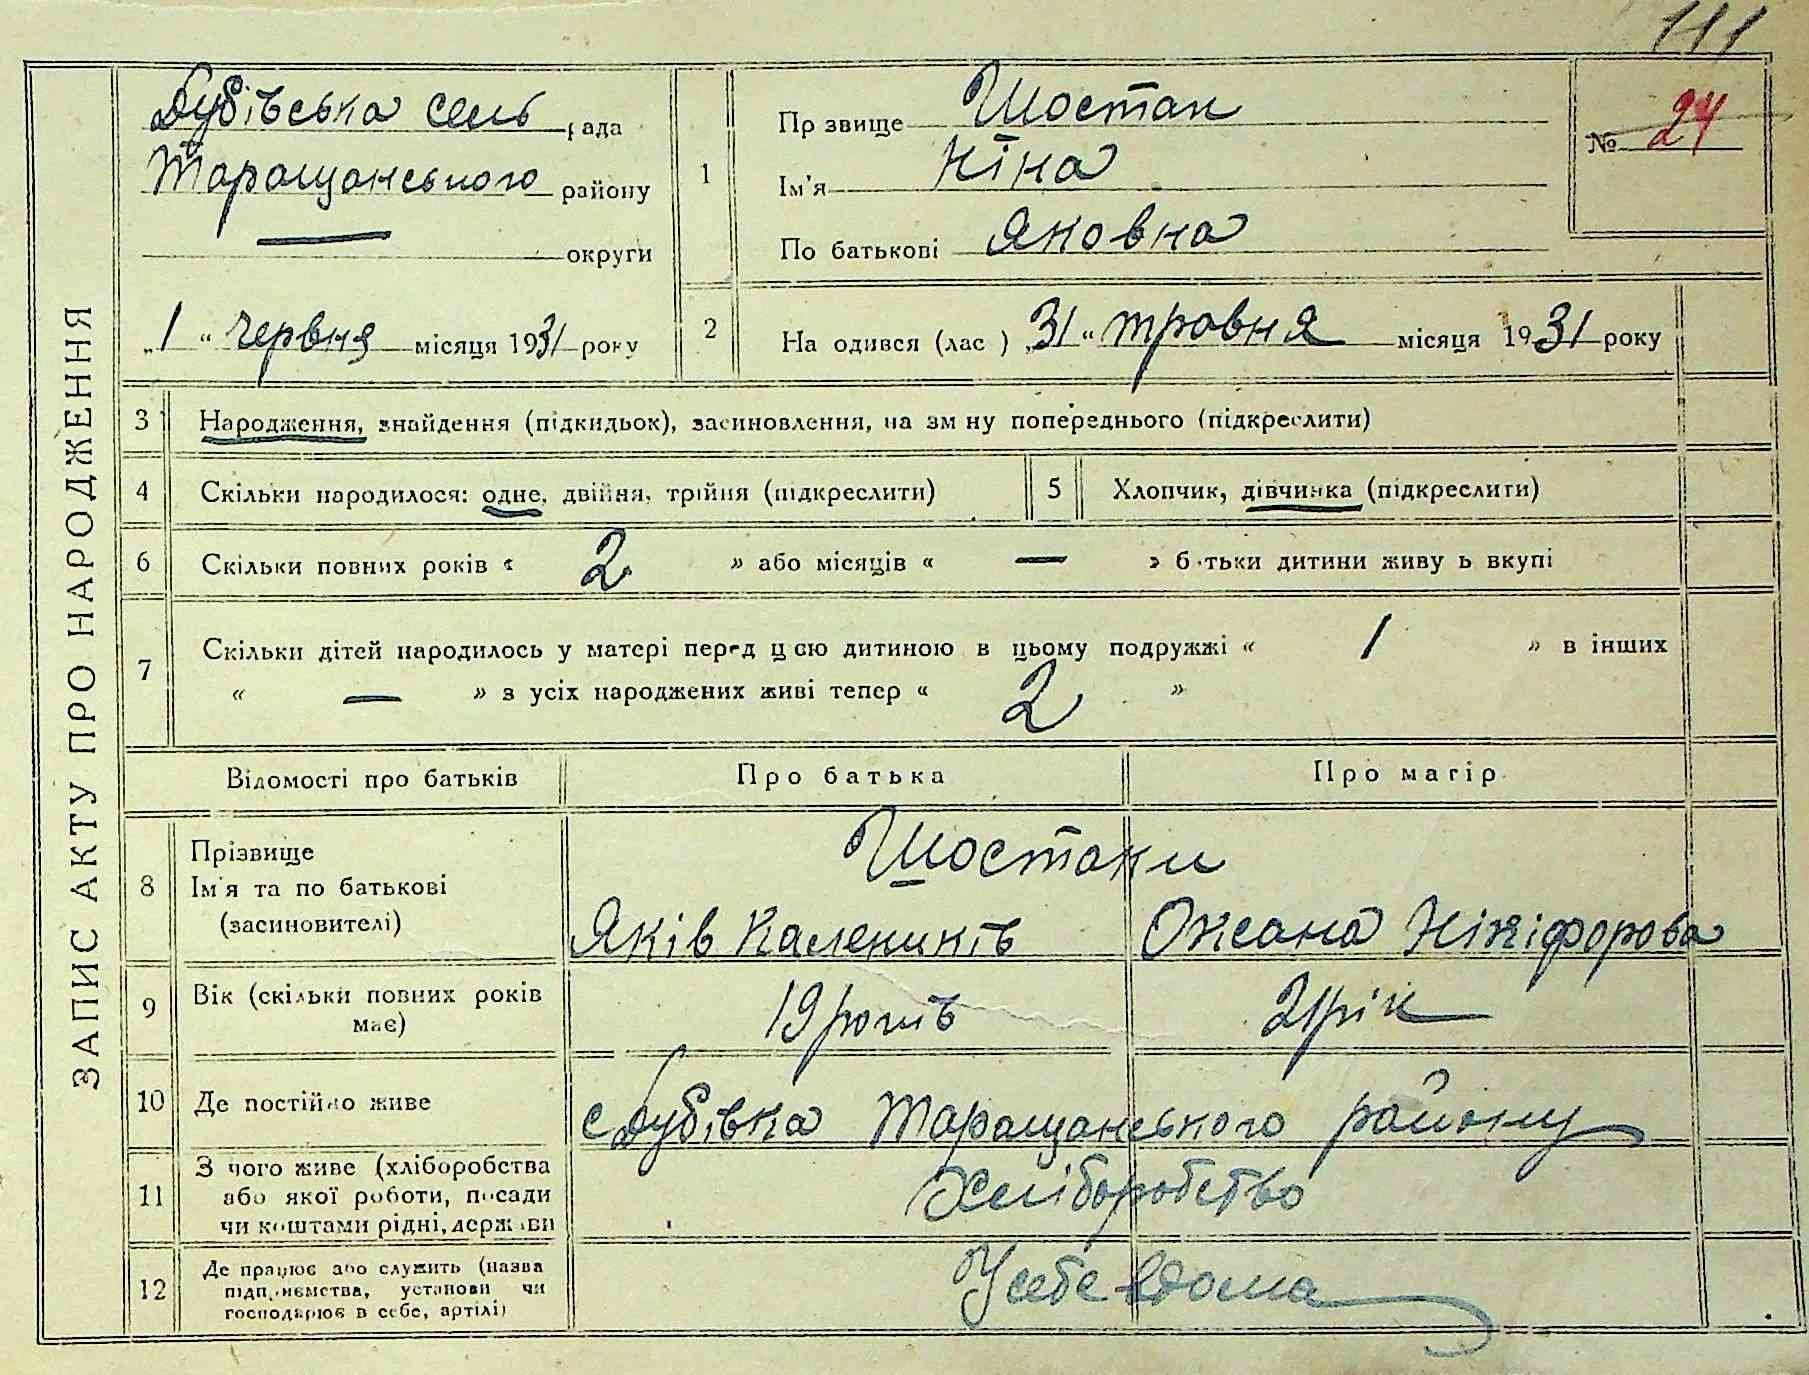 111
Дубівська сель рада
Таращанського району
— округи
„1“ червня місяця 1931 року
ЗАПИС АКТУ ПРО НАРОДЖЕННЯ
№ 24
1 Пр звище Шостак
Ім'я Ніна
По батькові Яковна
2 На одився (лас ) „31“ травня місяця 1931 року
3 Народження, знайдення (підкидьок), засиновлення, на зм ну попереднього (підкреслити)
4 Скільки народилося: одне, двійня, трійня (підкреслити)
5 Хлопчик, дівчинка (підкреслити)
6 Скільки повних років « 2 » або місяців « — » б тьки дитини живу ь вкупі
7 Скільки дітей народилось у матері перед цією дитиною в цьому подружжі « 1 » в інших
« — » з усіх народжених живі тепер « 2 »
Відомості про батьків Про батька Про матір
8 Прізвище
Ім'я та по батькові
(засиновителі)
Шостаки
Яків Калеників Оксана Нікіфорова
9 Вік (скільки повних років
має)
19 років 21 рік
10 Де постійно живе с Дубівка Таращанського району
11 З чого живе (хліборобства
або якої роботи, посади
чи коштами рідні, держави
Хліборобство
12 Де працює або служить (назва
підприємства, установи чи
господарює в себе, артілі)
У себе вдома